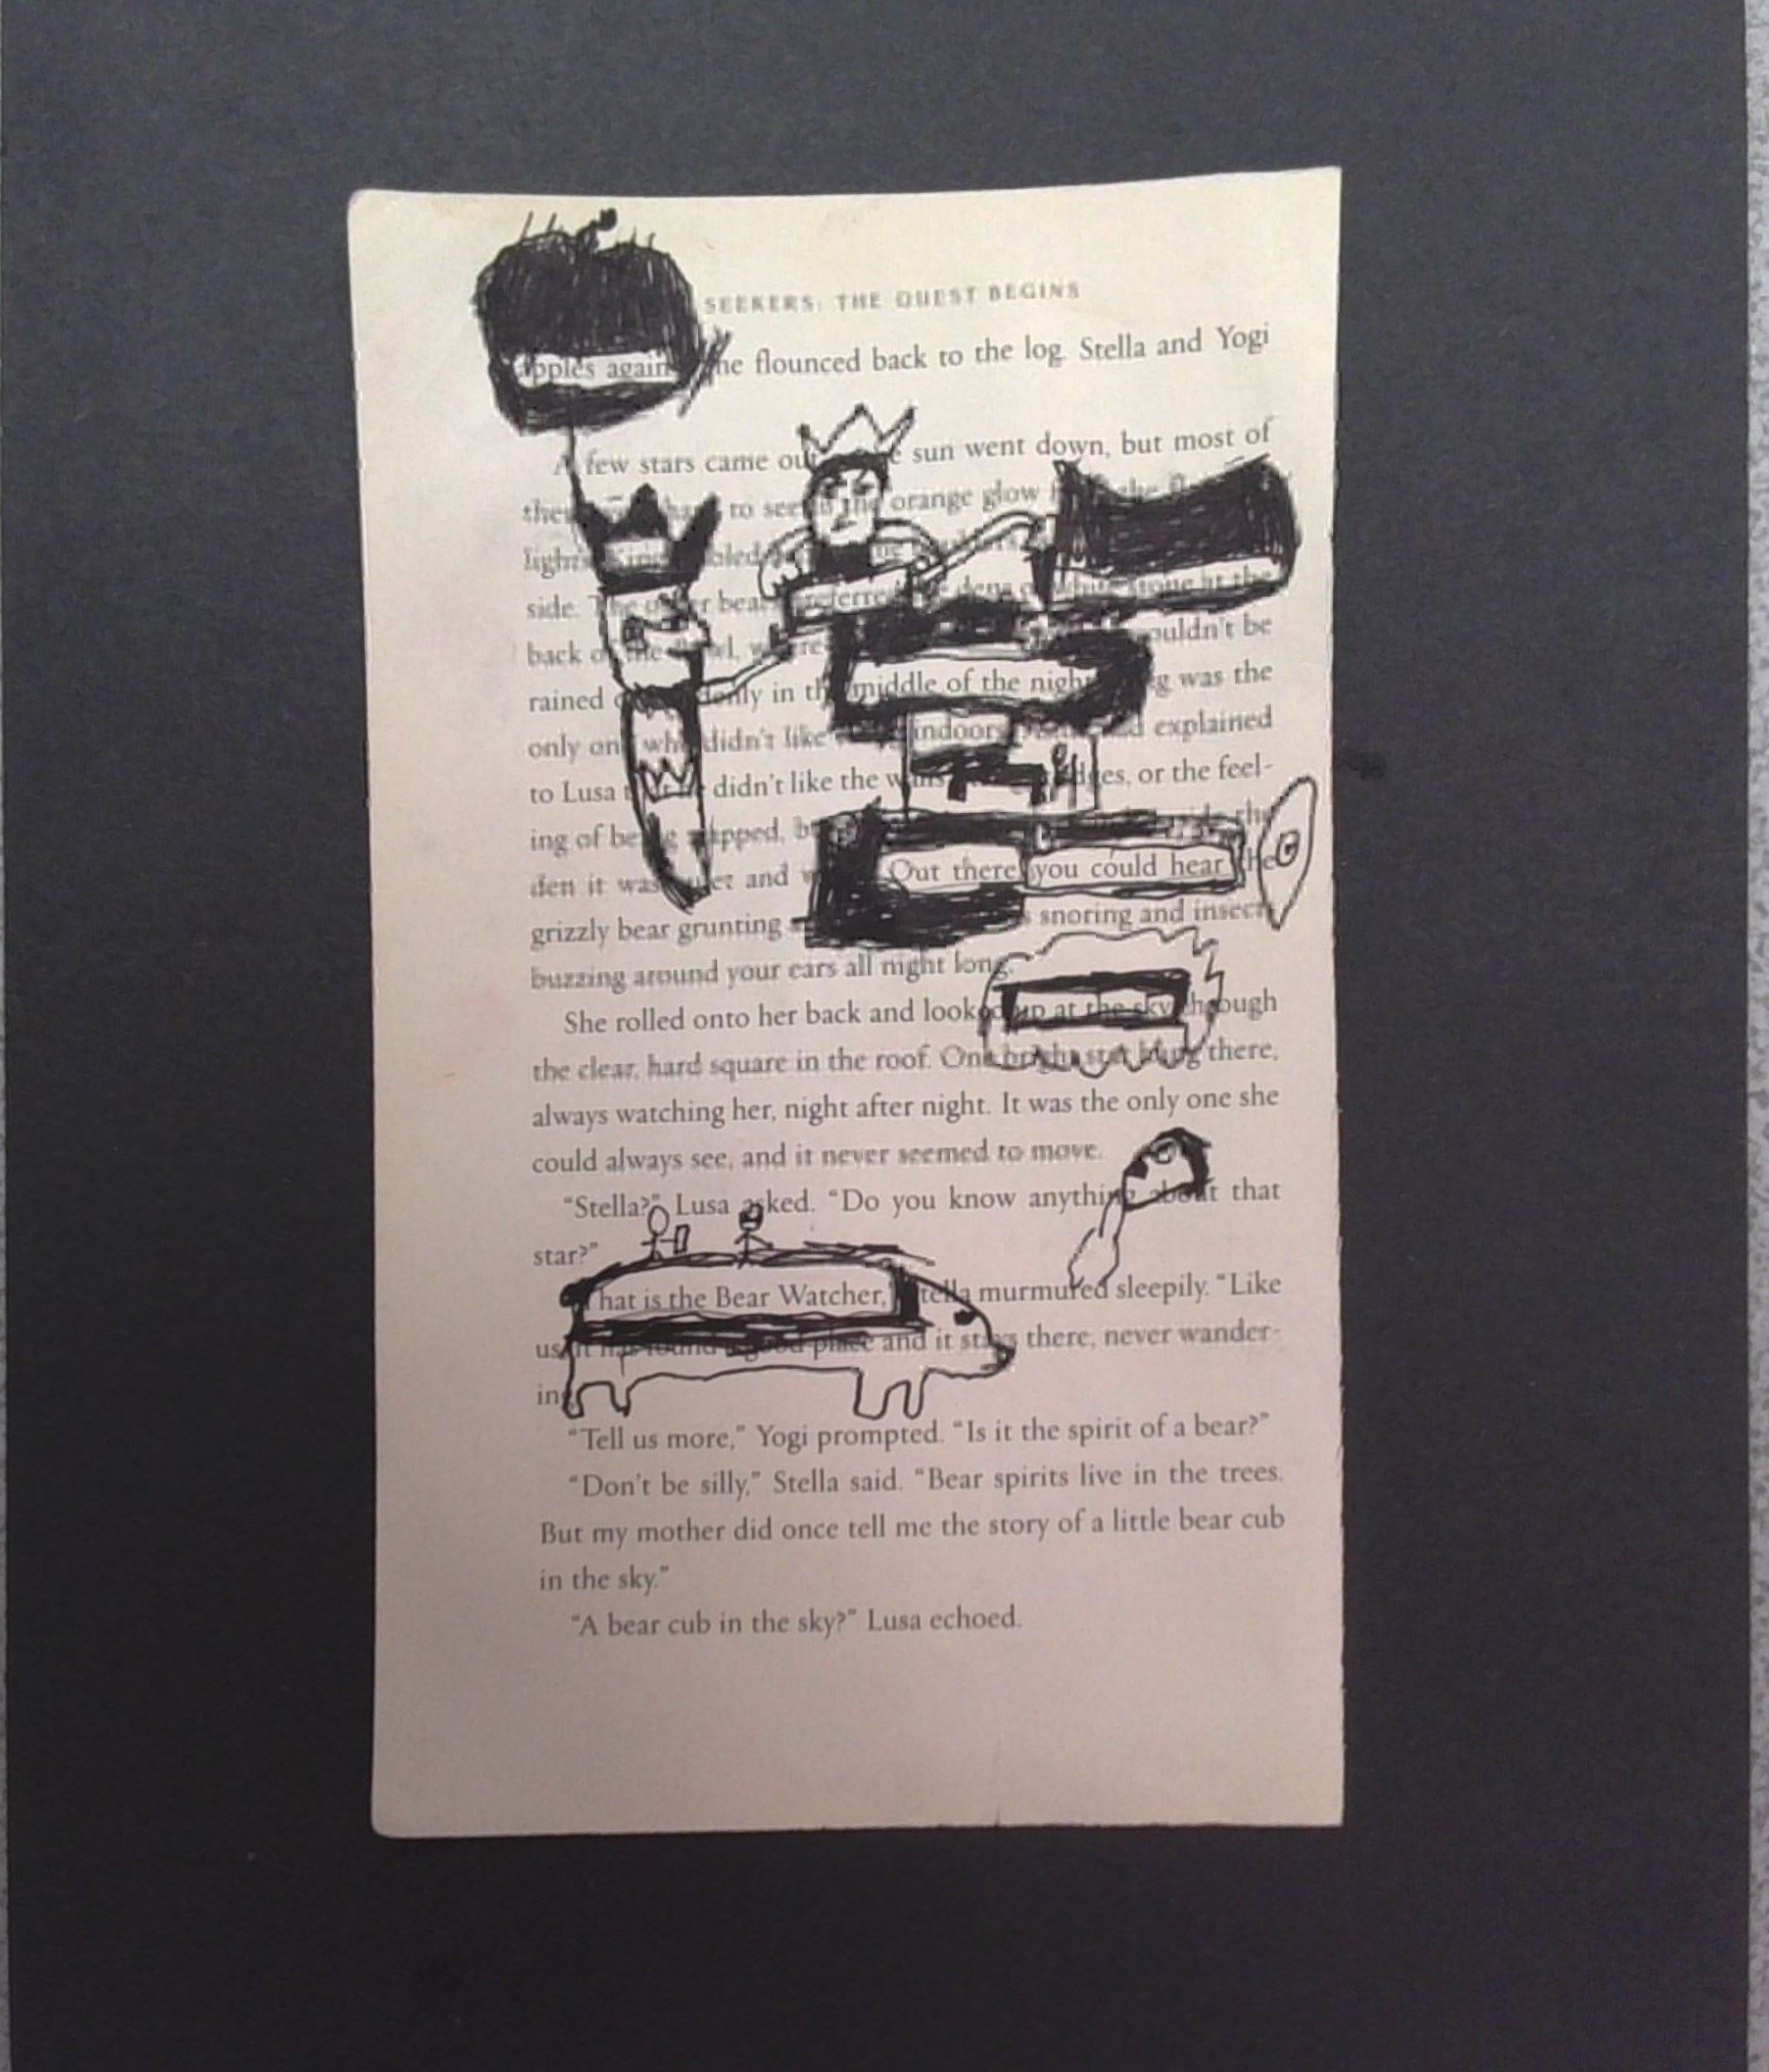 SEEKERS: THE QUEST BEGINS
apples again he flounced back to the log. Stella and Yogi
A few stars came out sun went down, but most of
to see in the orange glow
side. The other bears preferred the dens
back of the
rained in the middle of the night was the
only one who didn't like indoors explained
to Lusa didn't like the or the feel-
ing of being
den it was and Out there you could hear the
grizzly bear grunting snoring and insects
buzzing around your ears all night long.
She rolled onto her back and looked up at the sky through
the clear, hard square in the roof. One bright star hung there,
always watching her, night after night. It was the only one she
could always see, and it never seemed to move.
“Stella?” Lusa asked. “Do you know anything about that
star?”
That is the Bear Watcher, Stella murmured sleepily. “Like
us, it has found a good place and it stays there, never wander-
ing.
“Tell us more,” Yogi prompted. “Is it the spirit of a bear?”
“Don't be silly,” Stella said. “Bear spirits live in the trees.
But my mother did once tell me the story of a little bear cub
in the sky.”
“A bear cub in the sky?” Lusa echoed.